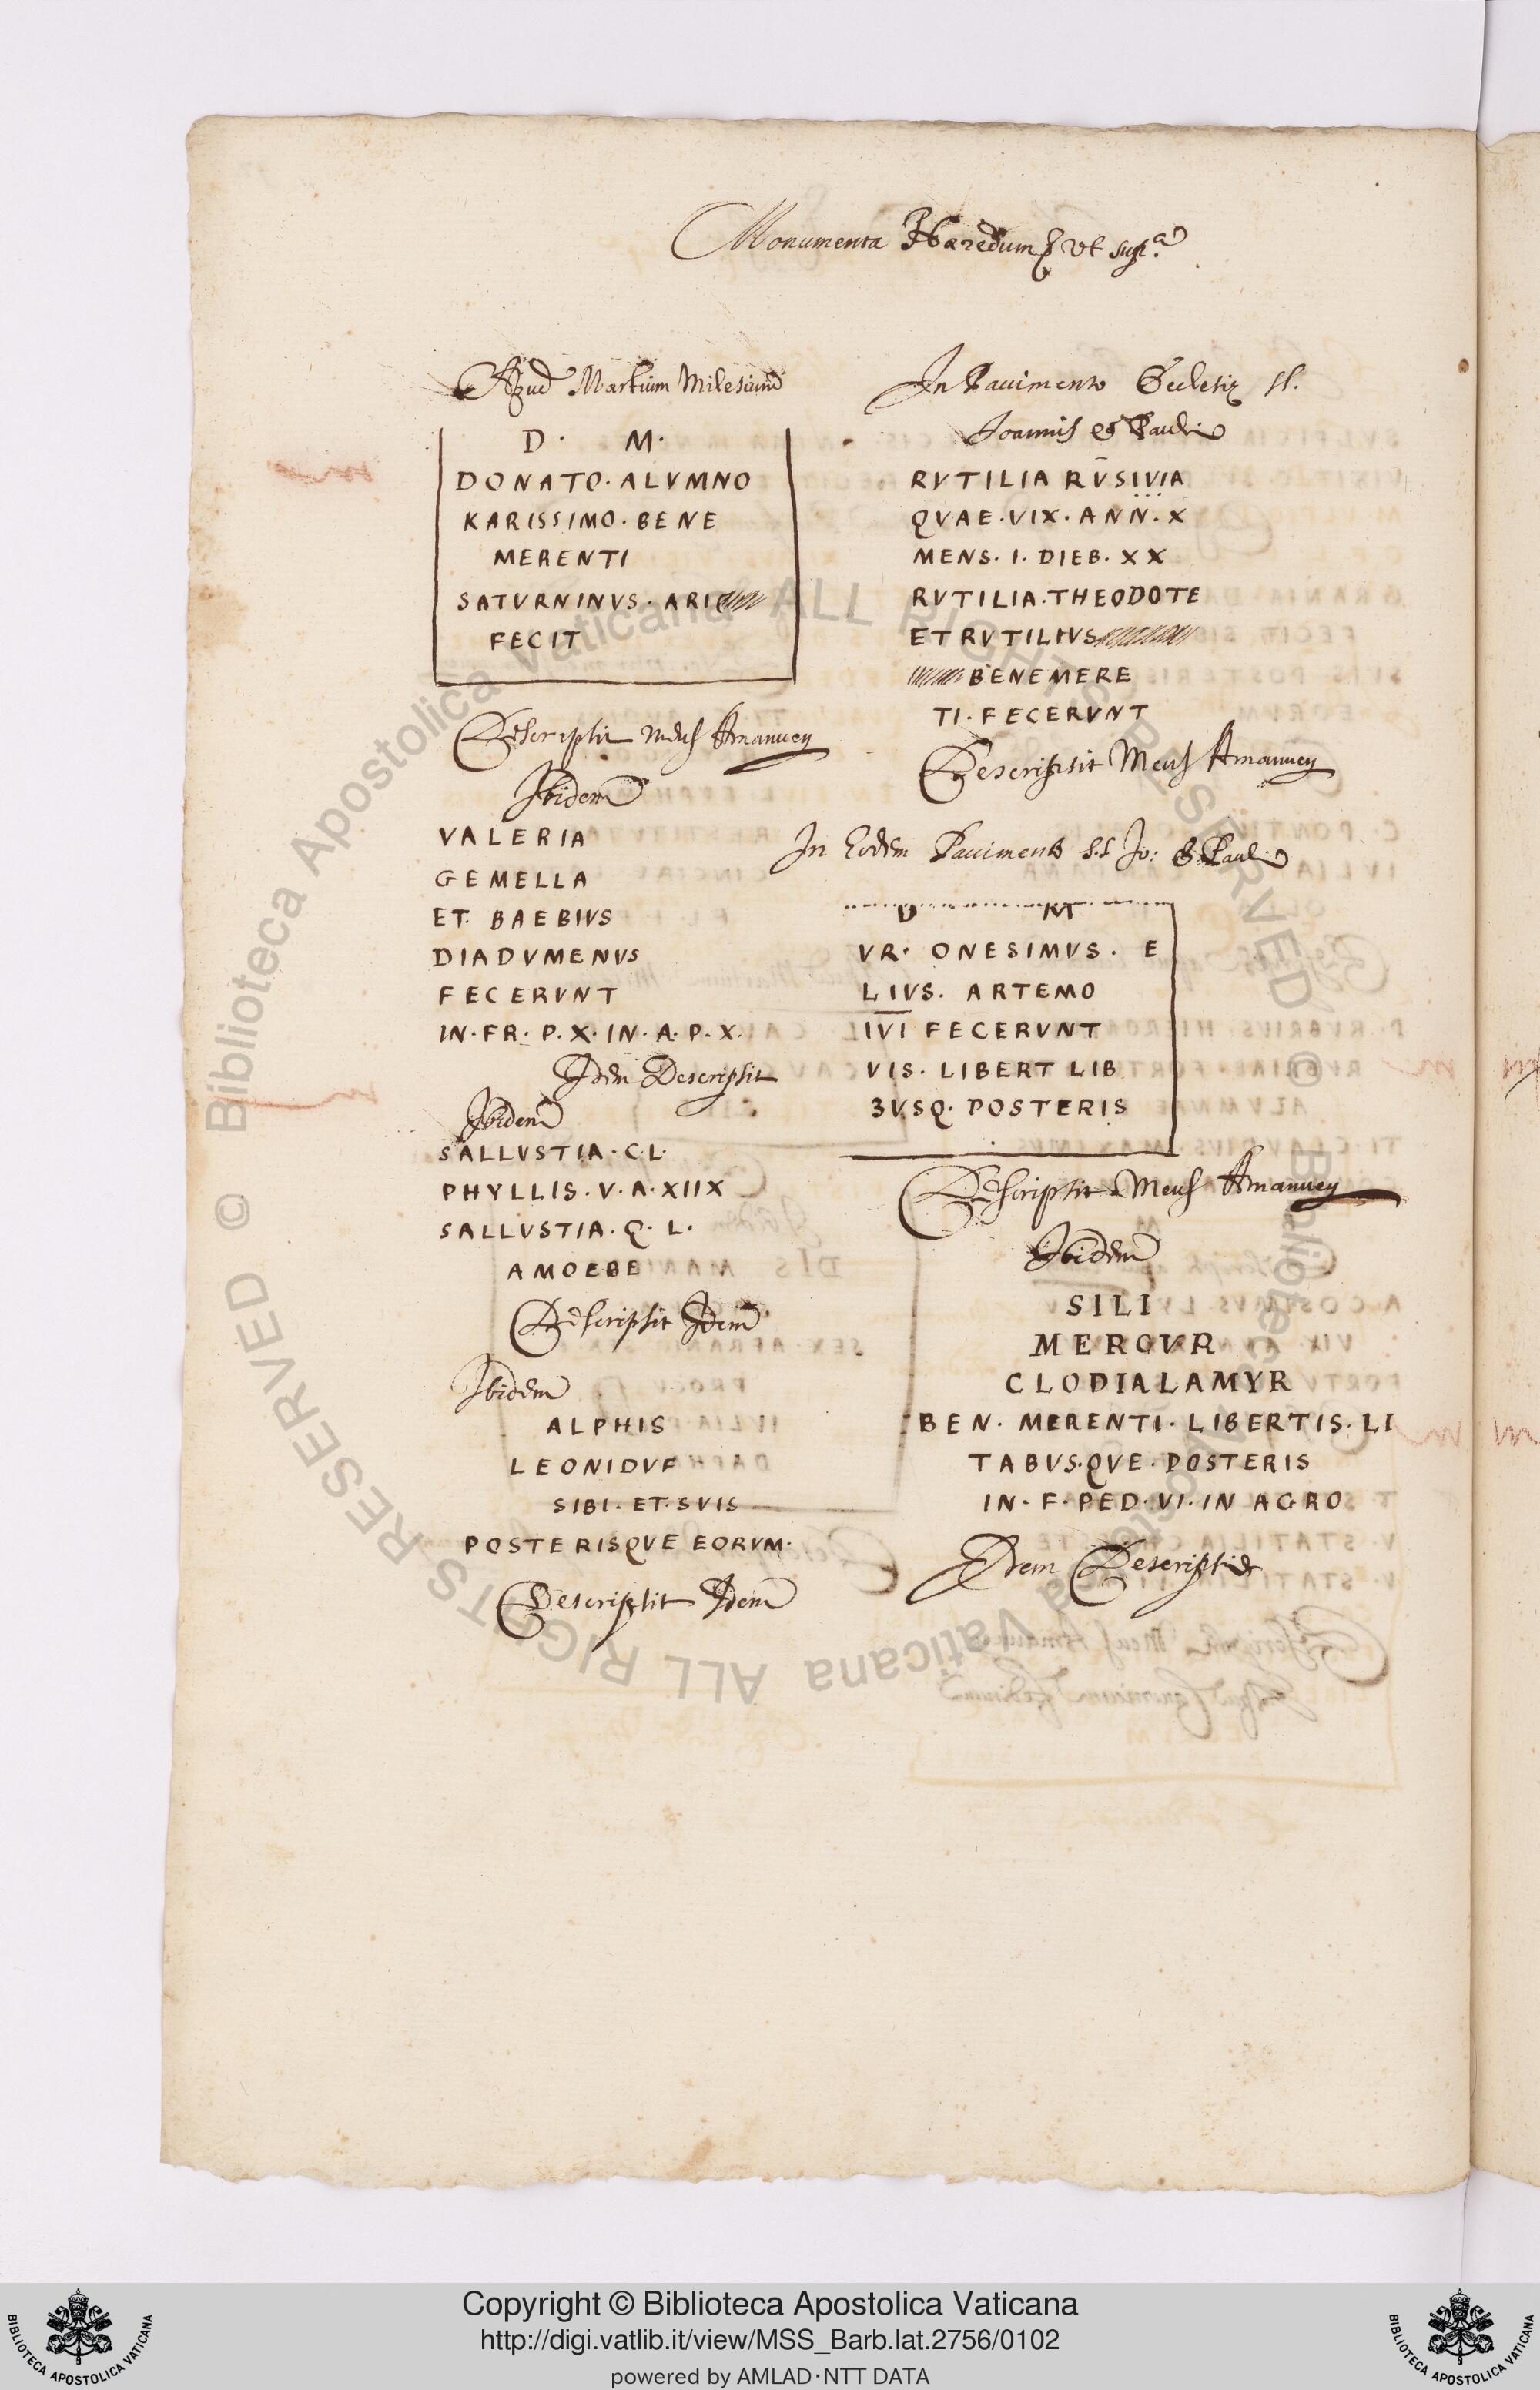 Monumenta Haeredum & Vt supra
Apud Martium Milesium
D · M ·
DONATO · ALVMNO
KARISSIMO · BENE
MERENTI
SATVRNINVS · ARI
FECIT
Descripsit meus Amanuen
Ibidem
VALERIA
GEMELLA
ET · BAEBIVS
DIADVMENVS
FECERVNT
IN · FR · P · X · IN · A · P · X ·
Idem Descripsit
Ibidem
SALLVSTIA · C · L ·
PHYLLIS · V · A · XIIX
SALLVSTIA · Q · L ·
AMOEBE
Descripsit Idem
Ibidem
ALPHIS
LEONIDVF
SIBI · ET · SVIS
POSTERISQVE EORVM ·
Descripsit Idem
In Pauimento Ecclesiæ SS.
Joannis & Pauli
RVTILIA RVSIVIA
QVAE · VIX · ANN · X
MENS · I · DIEB · XX
RVTILIA · THEODOTE
ET RVTILIVS
BENEMERE
TI · FECERVNT
Descripsit Meus Amanuen
In Eodem Pauimento S.S Jo: & Pauli
D M
VR · ONESIMVS · E
LIVS · ARTEMO
IVI FECERVNT
VIS · LIBERT LIB
BVSQ · POSTERIS
Descripsit Meus Amanuen
Ibidem
SILI
MERCVR
CLODIALAMYR
BEN · MERENTI · LIBERTIS · LI
TABVS · QVE · POSTERIS
IN · F · PED · VI · IN AGRO
Idem Descripsit
Biblioteca Apostolica Vaticana ALL RIGHTS RESERVED ©
Biblioteca Apostolica Vaticana ALL RIGHTS RESERVED ©
BIBLIOTECA APOSTOLICA VATICANA
Copyright © Biblioteca Apostolica Vaticana
http://digi.vatlib.it/view/MSS_Barb.lat.2756/0102
powered by AMLAD·NTT DATA
BIBLIOTECA APOSTOLICA VATICANA